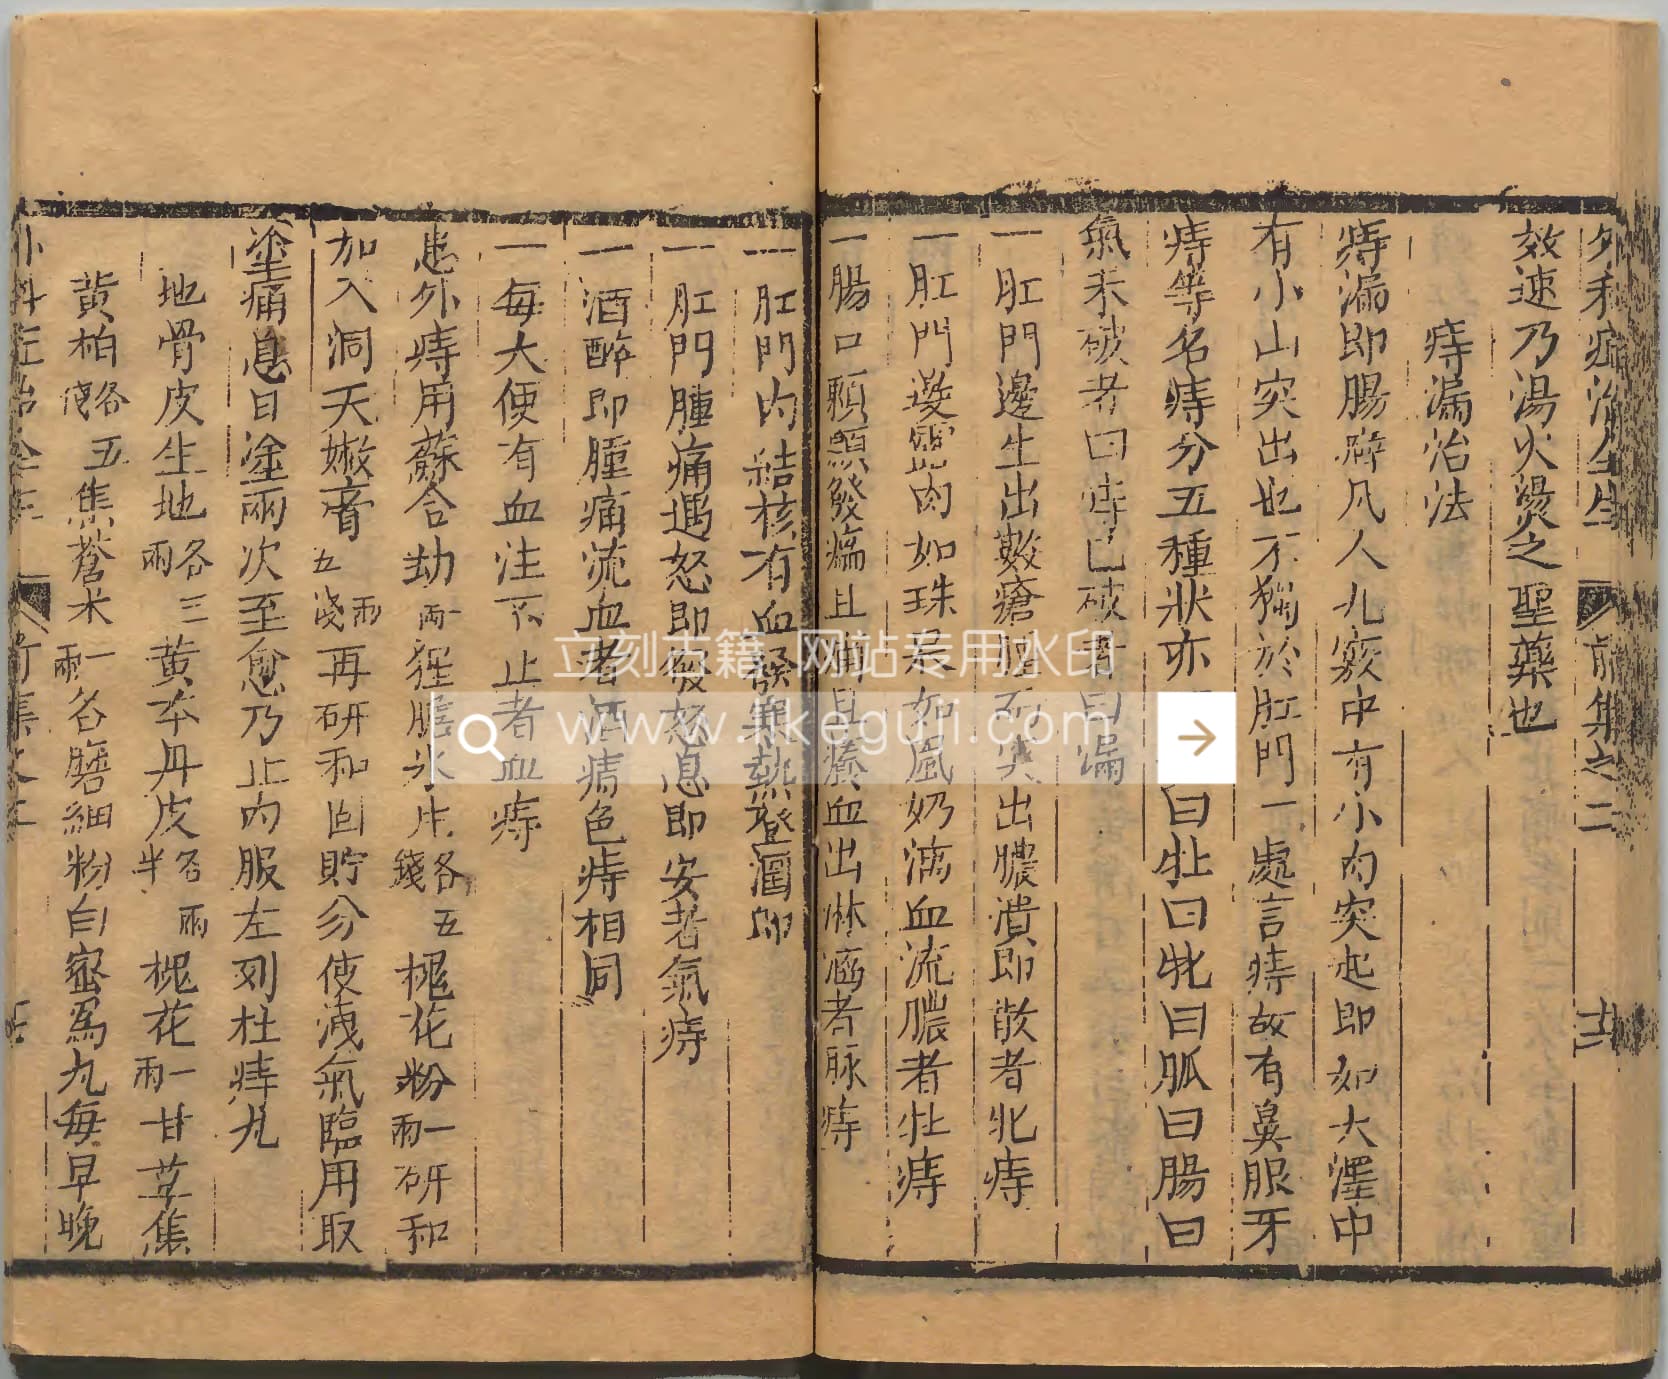 外科症治全生 前集之二 十二
效速乃湯火燙之聖藥也
痔漏治法
痔漏即腸癖凡人九竅中有小肉突起即如大澤中
有小山突出也不獨於肛門一處言痔故有鼻眼牙
痔等名痔分五種狀亦曰牡曰牝曰脈曰腸曰
氣未破者曰痔已破者曰漏
一肛門邊生出數瘡腫而突出膿潰即散者牝痔
一肛門邊露肉如珠如鼠奶滴血流膿者牡痔
一腸口顆顆發瘟且痛且癢血出淋瀝者脉痔
一肛門內結核有血發寒熱登溷即
一肛門腫痛遇怒即發怒息即安者氣痔
一酒醉即腫痛流血者酒痔色痔相同
一每大便有血注下不止者血痔
患外痔用蘇合劫兩一猩膽冰片各五錢槐花粉一兩研和
加入洞天嫩膏兩五錢再研和固貯分使洩氣臨用取
塗痛息日塗兩次至愈乃止內服左列杜痔丸
地骨皮生地各三兩黃本丹皮各兩半槐花一兩甘草焦
黃柏各五錢焦蒼朮一兩各磨細粉白蜜為丸每早晚
立刻古籍 网站专用水印
www.lkeguji.com